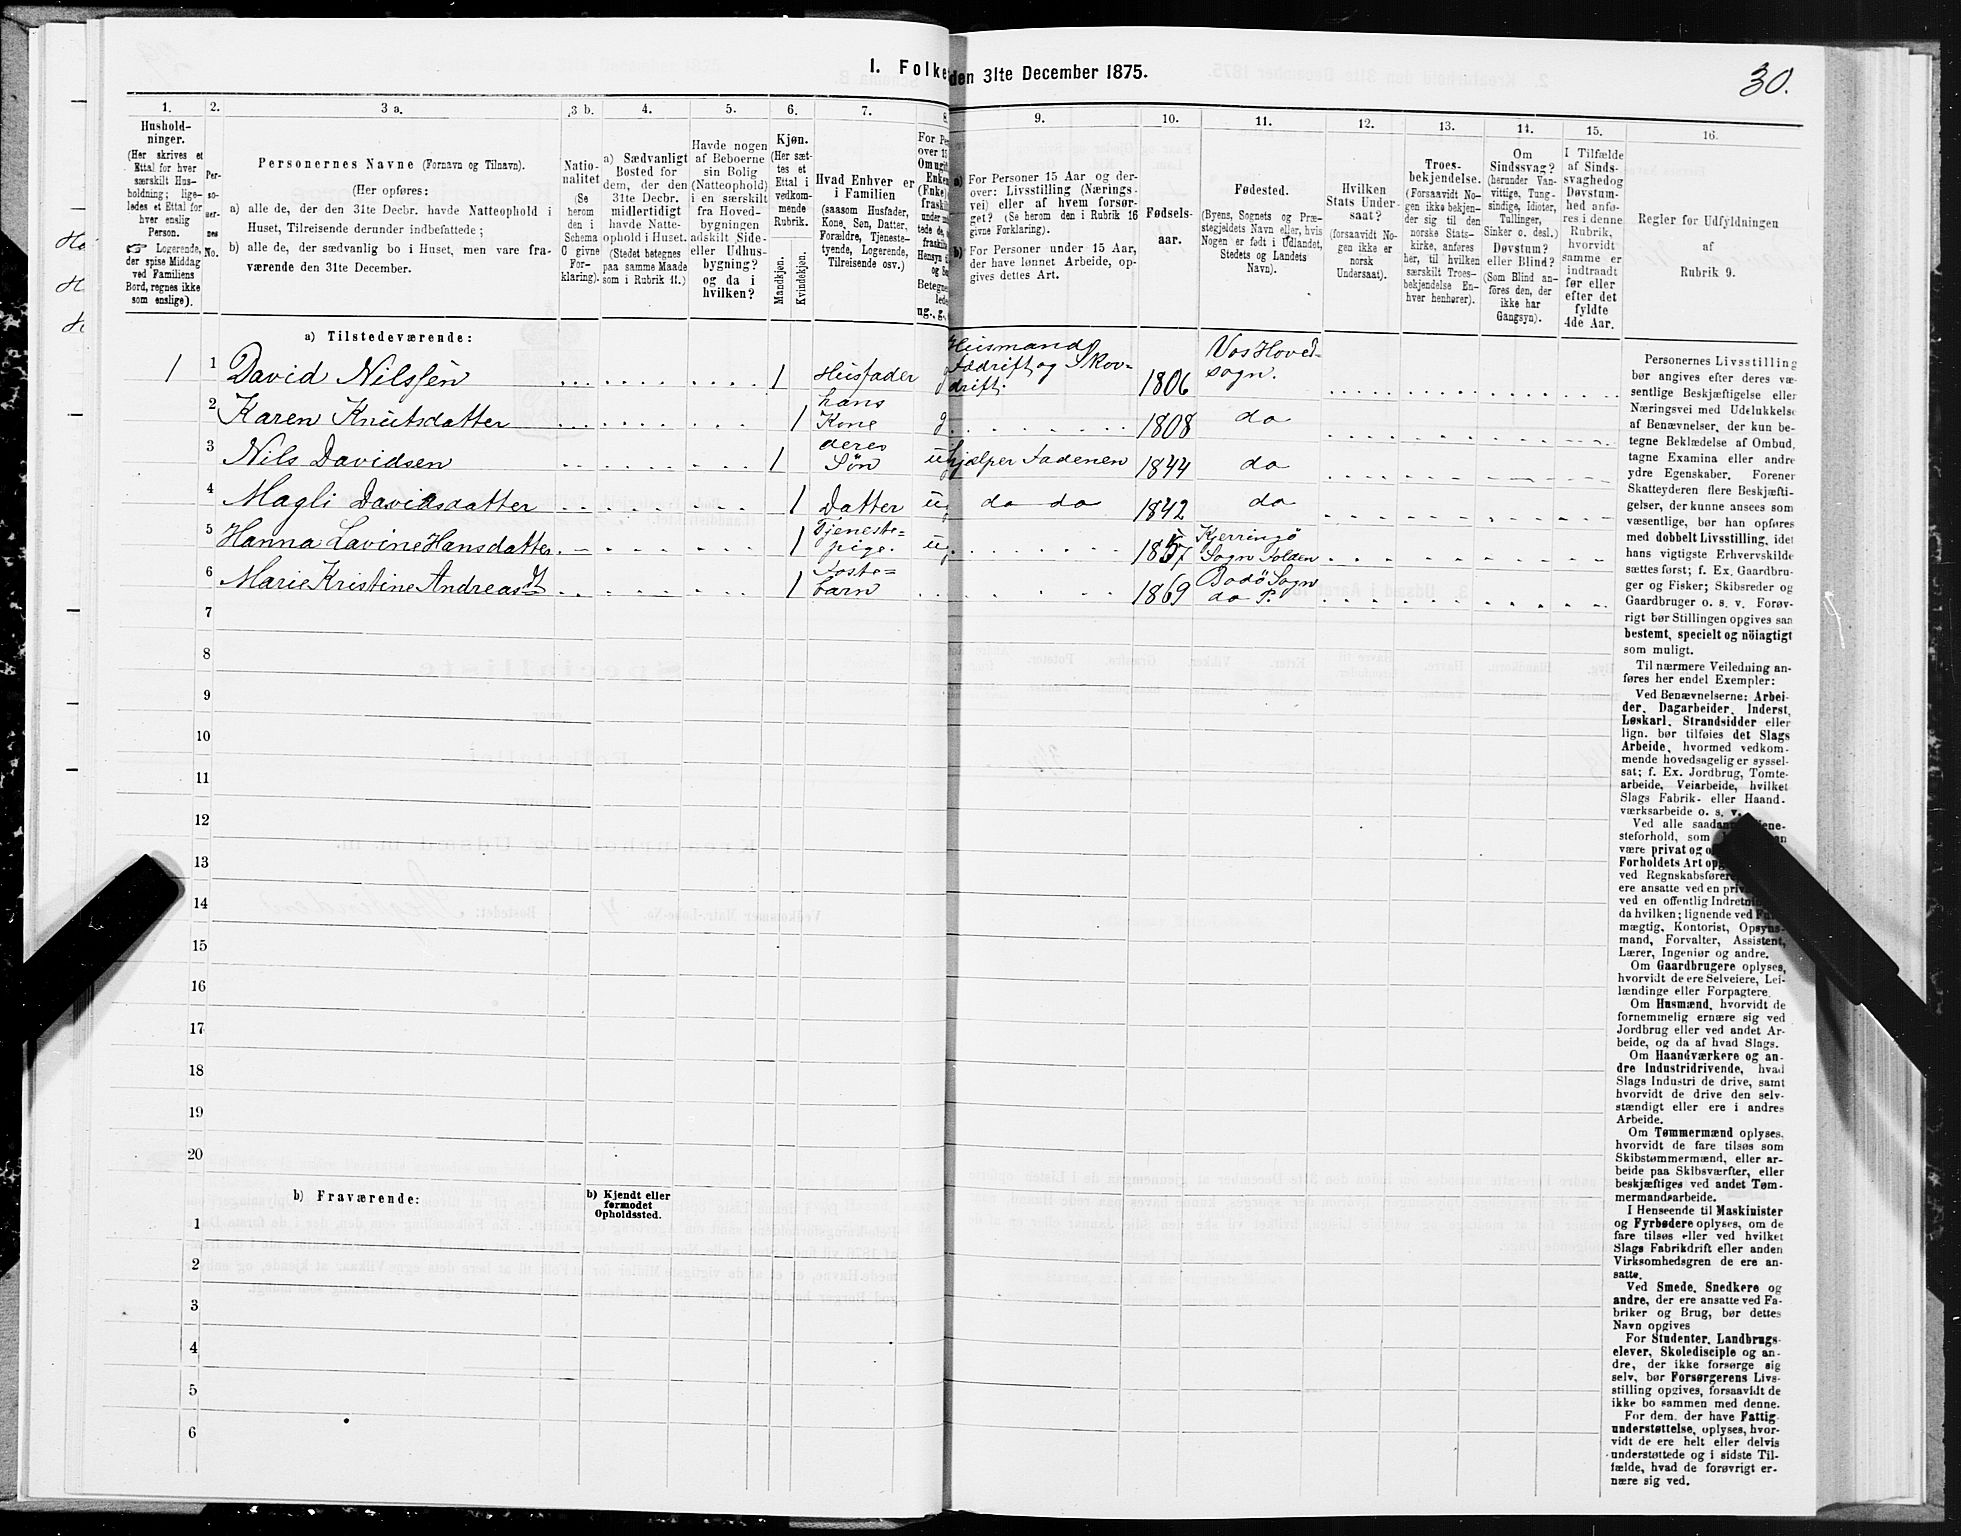 I. Folke
den 31te December 1875.
30.
1.
2.
3 a.
3 b.
4.
5.
6.
7.
8.
9.
10.
11.
12.
13.
14.
15.
16.
Hushold-
ninger.
(Her skrives et
Ettal for hver
særskilt Hus-
holdning; lige-
ledes et Ettal for
hver enslig
Person.
☞ Logerende,
der spise Middag
ved Familiens
Bord, regnes ikke
som enslige).
Per-
so-
ner-
nes
No.
Personernes Navne (Fornavn og Tilnavn).
(Her opføres:
a) alle de, der den 31te Decbr. havde Natteophold i
Huset, Tilreisende derunder indbefattede;
b) alle de, der sædvanlig bo i Huset, men vare fra-
værende den 31te December.
Natio-
nalitet
(Se
herom
den i
Schema
G givne
For-
klaring).
a) Sædvanligt
Bosted for
dem, der den
31te Decbr.
midlertidigt
havde Natte-
ophold i Huset.
(Stedet betegnes
paa samme Maade
som i Rubrik 11.)
Havde nogen
af Beboerne
sin Bolig
(Natteophold)
i en særskilt
fra Hoved-
bygningen
adskilt Side-
eller Udhus-
bygning?
og da i
hvilken?
Kjøn.
(Her sæt-
tes et
Ettal i
vedkom-
mende
Rubrik.
Mandkjøn.
Kvindekjøn.
Hvad Enhver er
i Familien
(saasom Husfader,
Kone, Søn, Datter,
Forældre, Tjeneste-
tyende, Logerende,
Tilreisende osv.)
For Pe
over 1
Omugif
Enken
(Enke)
fraskil
under
tede de,
fraskil
Hensyn
og Se
Betegne
lede
ug., g.,
a) For Personer 15 Aar og der-
over: Livsstilling (Nærings-
vei) eller af hvem forsør-
get? (Se herom den i Rubrik 16
givne Forklaring).
b) For Personer under 15 Aar,
der have lønnet Arbeide, op-
gives dettes Art.
Fødsels-
aar.
Fødested.
(Byens, Sognets og Præ-
stegjeldets Navn eller, hvis
Nogen er født i Udlandet,
Stedets og Landets
Navn).
Hvilken
Stats Under-
saat?
(forsaavidt No-
gen ikke er
norsk
Undersaat).
Troes-
bekjendelse.
(Forsaavidt No-
gen ikke bekjen-
der sig til den
norske Stats-
kirke, anføres
her, til hvilken
særskilt Troes-
bekjendelse En-
hver henhører).
Om
Sindssvag?
(herunder Van-
vittige, Tung-
sindige, Idioter,
Tullinger,
Sinker o. desl.)
Døvstum?
eller Blind?
(Som Blind an-
føres den, der
ikke har
Gangsyn).
I Tilfælde
af Sinds-
svaghed og
Døvstum-
hed anfø-
res i denne
Rubrik,
hvorvidt
samme er
indtraadt
før eller
efter det
fyldte
4de Aar.
Regler for Udfyldningen
af
Rubrik 9.
a) Tilstedeværende:
1 1 David Nilssen 1 Husfader g Husmand Jodrift og Skov-drift. 1806 Vos Hovedsogn.
2 Karen Knutsdatter 1 hans Kone g 1808 do
3 Nils Davidsen 1 deres Søn ug hjælper Faderen 1844 do
4 Magli Davidsdatter 1 Datter ug do do 1842 do
5 Hanna Lavine Hansdatter 1 Tjeneste-pige. ug 1857 Kjerringö Sogn Folden
6 Marie Kristine Andreasd 1 Foste-barn 1869 Bodö Sogn do P.
7
8
9
10
11
12
13
14
15
16
17
18
19
20
b) Fraværende:
b) Kjendt eller
formodet
Opholdssted.
1
2
3
4
5
6
Personernes Livsstilling
bør angives efter deres væ-
sentlige Beskjæftigelse eller
Næringsvei med Udelukkelse
af Benævnelser, der kun be-
tegne Beklædelse af Ombud,
tagne Examina eller andre
ydre Egenskaber. Forener
Skatteyderen flere Beskjæfti-
gelser, der kunne ansees som
væsentlige, bør han opføres
med dobbelt Livsstilling, idet
hans vigtigste Erhvervskilde
sættes først; f. Ex. Gaardbru-
ger og Fisker; Skibsreder og
Gaardbruger o. s. v. Forøv-
rigt bør Stillingen opgives saa
bestemt, specielt og nöiagtigt
som muligt.
Til nærmere Veiledning an-
føres her endel Exempler:
Ved Benævnelserne: Arbei-
der, Dagarbeider, Inderst,
Løskarl, Strandsidder eller
lign. bør tilføies det Slags
Arbeide, hvormed vedkom-
mende hovedsagelig er syssel-
sat; f. Ex. Jordbrug, Tomte-
arbeide, Veiarbeide, hvilket
Slags Fabrik- eller Haand-
værksarbeide o. s. v.
Ved alle saadanne Tjene-
steforhold, som
være privat og o
Forholdets Art opg
ved Regnskabsføre
ere ansatte ved en priv
ved en offentlig Indretnin
da hvilken; lignende ved Fu
mægtig, Kontorist, Opsyns-
mand, Forvalter, Assistent,
Lærer, Ingeniør og andre.
Om Gaardbrugere oplyses,
hvorvidt de ere Selveiere, Lei-
lændinge eller Forpagtere.
Om Husmænd, hvorvidt de
fornemmelig ernære sig ved
Jordbrug eller ved andet Ar-
beide, og da af hvad Slags.
Om Haandværkere og an-
dre Industridrivende, hvad
Slags Industri de drive, samt
hvorvidt de drive den selv-
stændigt eller ere i andres
Arbeide.
Om Tømmermænd oplyses,
hvorvidt de fare tilsøs som
Skibstømmermænd, eller ar-
beide paa Skibsværfter, eller
beskjæftiges ved andet Tøm-
mermandsarbeide.
I Henseende til Maskinister
og Fyrbødere oplyses, om de
fare tilsøs eller ved hvilket
Slags Fabrikdrift eller anden
Virksomhedsgren de ere an-
satte.
Ved Smede, Snedkere og
andre, der ere ansatte ved Fa-
briker og Brug, bør dettes
Navn opgives
For Studenter, Landbrugs-
elever, Skoledisciple og an-
dre, der ikke forsørge sig
selv, bør Forsørgerens Livs-
stilling opgives, forsaavidt de
ikke bo sammen med denne.
For dem, der have Fattig-
understøttelse, oplyses, hvor-
vidt de ere helt eller delvis
understøttede og i sidste Til-
fælde, hvad de forøvrigt er-
nære sig ved.